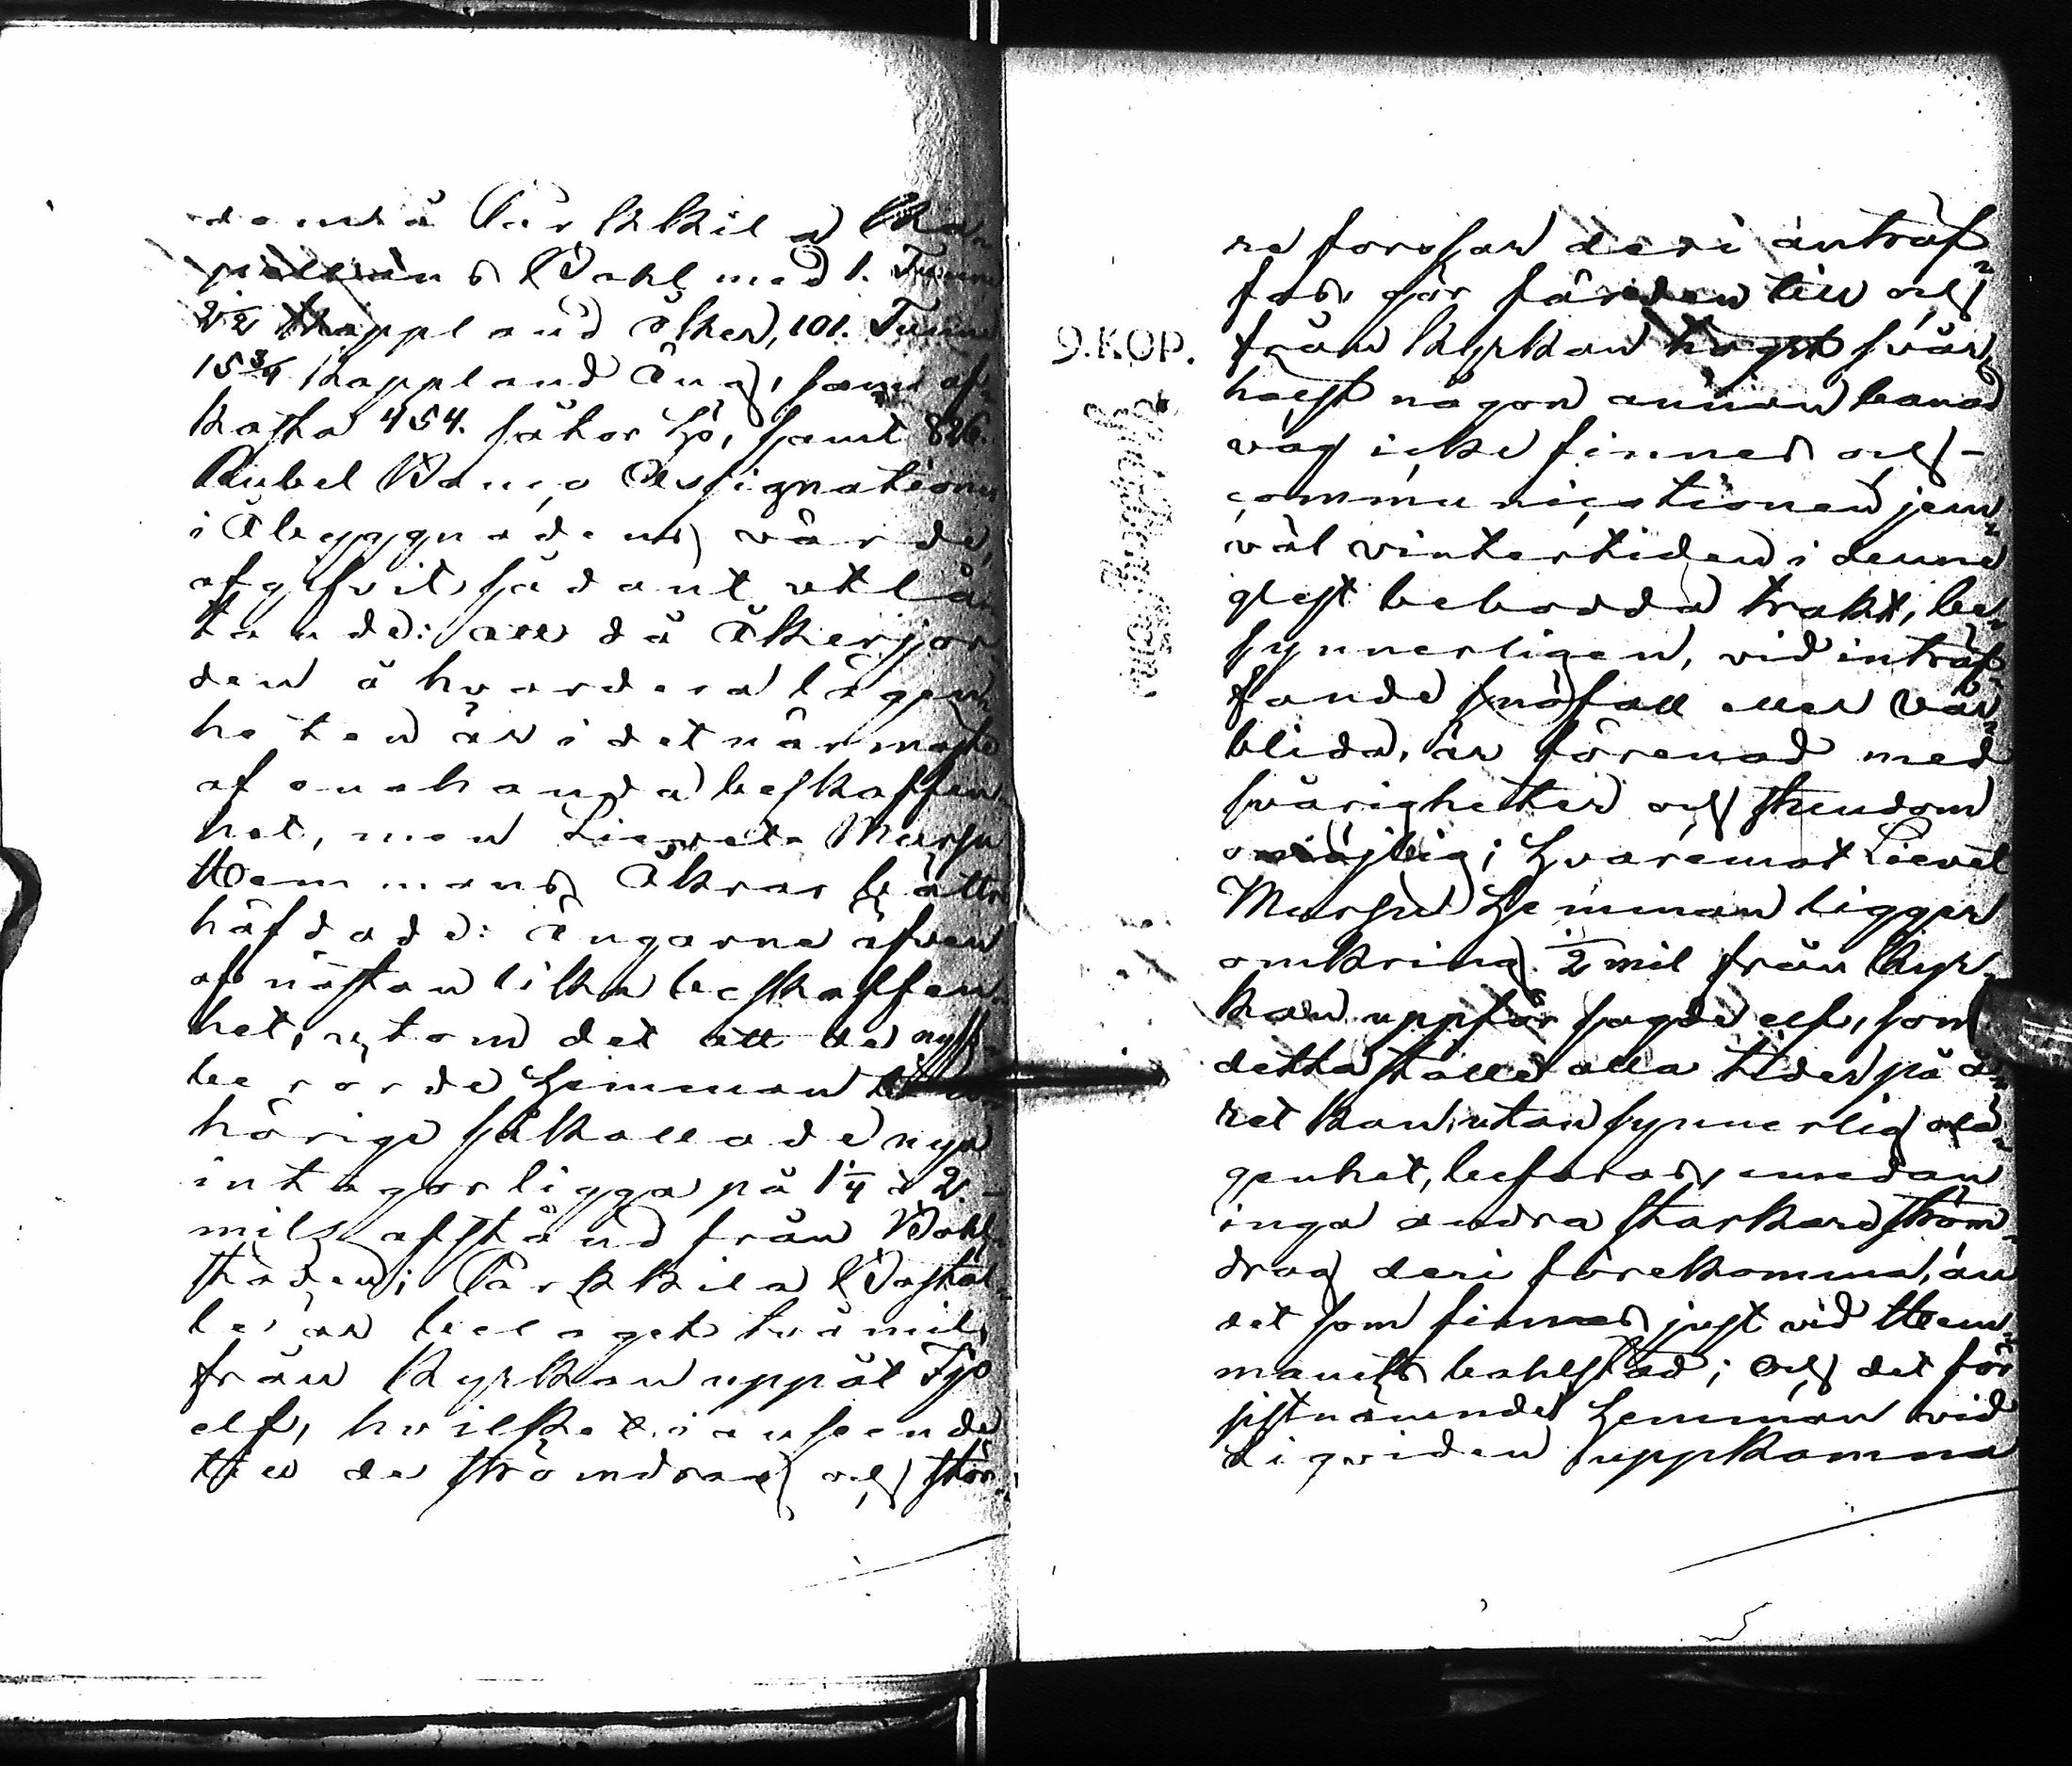 demå Pärkkilä Ka-
pellans Bohl med 1. Tunn
2½ Kappland åker, 101. Tunn
15¾ Kappland Äng, som af-
kasta 454. såtor hö, samt 826.
Rubel Banco Assignationer
i Åbyggnadens värde,
afgifvit sådant utlå-
tande: att då Åkerjor-
den å hvardera lägen-
heten är i det närmaste
af enahanda beskaffen-
het, men Liewete Marsu
Hemmans Åkrar bättre
häfdade: Ängarne äfven
af nästan lika beskaffen-
het, utom det att de nyss-
berörde Hemman till-
hörige så kallade nya
intagor ligga på 1¼ à 2.
mils afstånd från Bohl-
staden; Pärkkilä Boställe
le är belaget två mil
från Kyrkan uppåt Ijo
elf, hvilket i anseende
till de strömdrag och stör-
re forssar deri anträf-
fas, gör färden till och
9.KOP. från Kyrkan högst svår,
helst någon annan banad
väg icke finnes och
communicationen jem-
väl vintertiden i denne
glest bebodda trakt, be-
synnerligen, vid inträf-
fande snöfall eller vår-
blida, är förenad med
svårigheter och stundom
omöjlig; hvaremot Liewet
Marsu Hemman ligger
omkring ½ mil från Kyr-
kan uppför sagde elf, som
detta ställe alla tider på å-
ret kan, utan synnerlig olä-
genhet, befaras, emedan
inga andra starkare ström-
drag deri förekomma, än
det som finnes just vid Hem-
manets bohlstad; Och det för
sistnämnde Hemman vid
Liqviden uppkomna